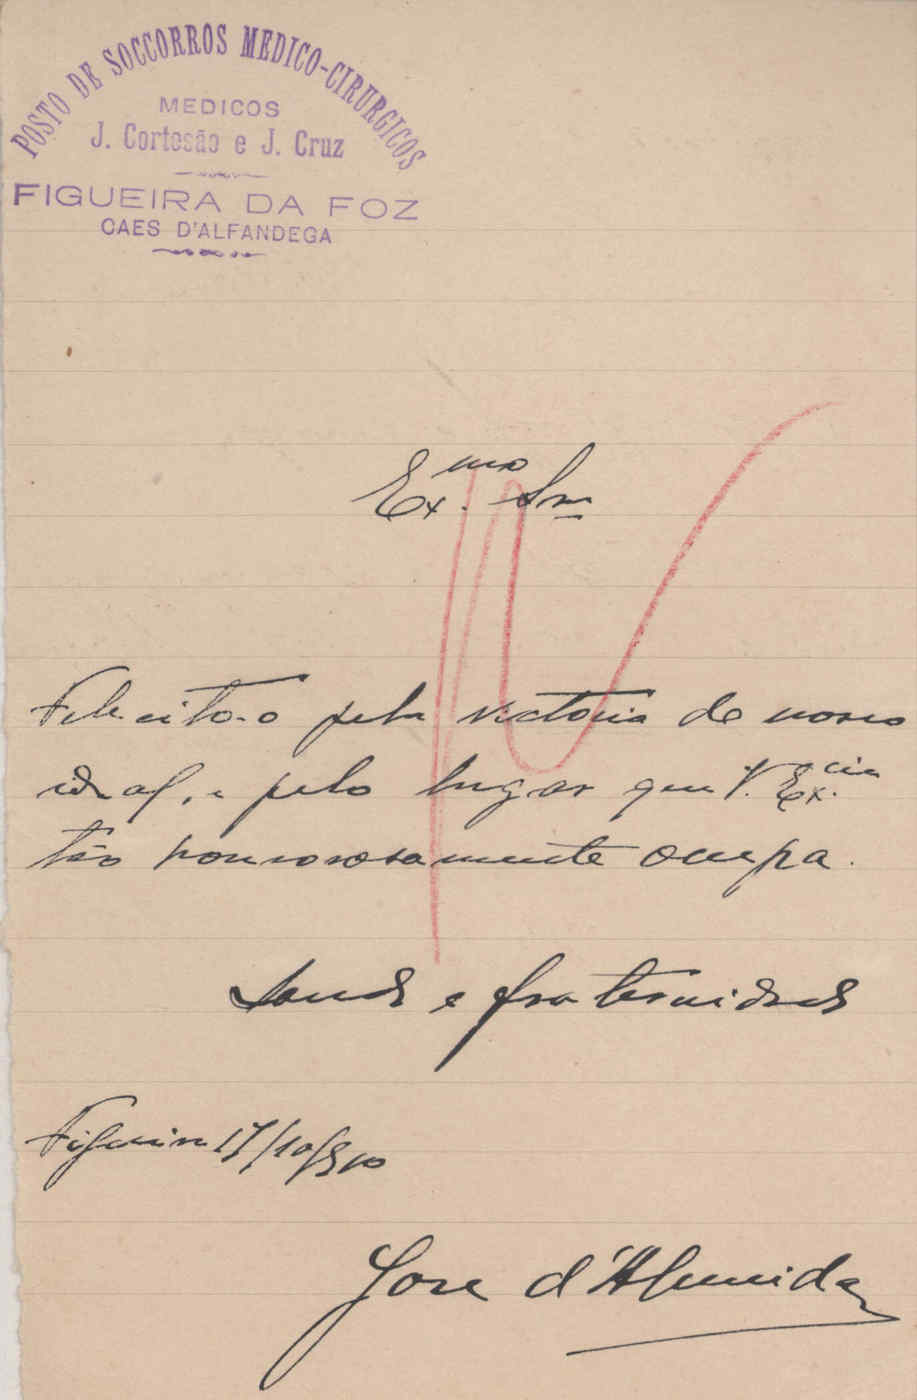 POSTO DE SOCCORROS MEDICO-CIRURGICOS
MEDICOS
J. Cortesão e J. Cruz
FIGUEIRA DA FOZ
CAES D'ALFANDEGA
Ex.mo Snr
Felicito-o pela victoria do nosso
ideal, e pelo lugar que V. Ex.cia
tão honrosamente occupa.
Saude e fraternidade
Figueira 17/10/910
Jose d'Almeida